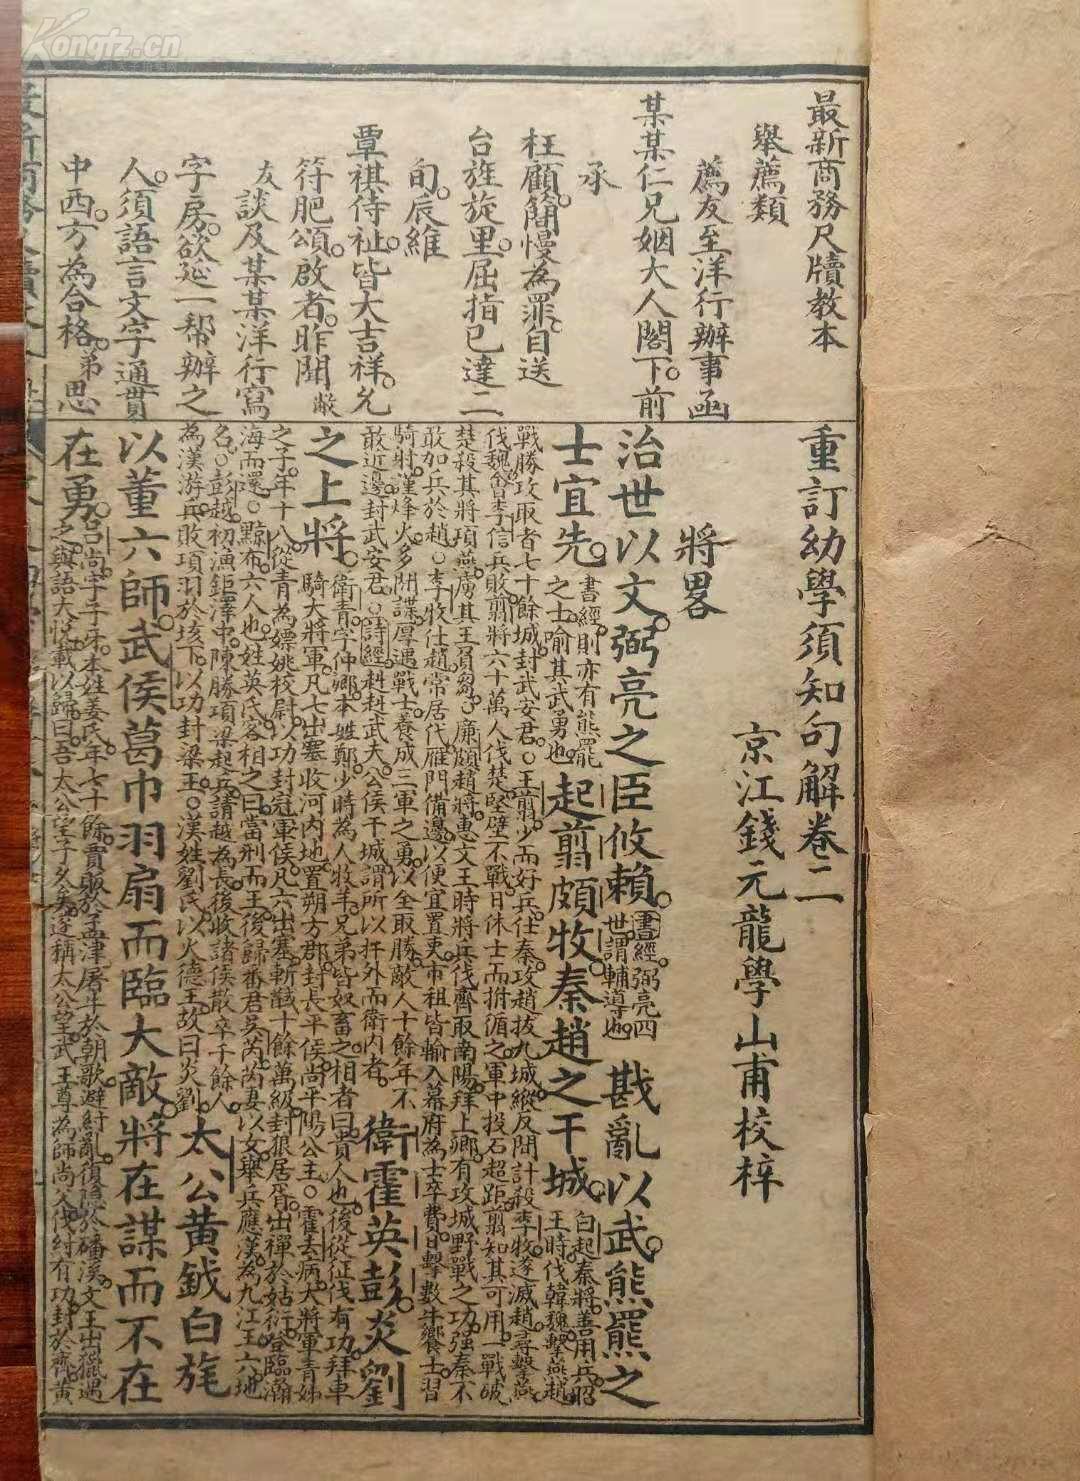 Kongfz.cn
最新商務尺牘教本
舉薦類
薦友至洋行辦事函
某某仁兄姻大人閣下。前
承
枉顧。簡慢為罪。自送
台旌旋里。屈指已達二
旬。辰維
覃祺侍祉。皆大吉祥。允
符肥頌。啟者。昨聞敝
友談及某某洋行寫
字房。欲延一幫辦之
人。須語言文字通貫
中西。方為合格。弟思
重訂幼學須知句解卷二
京江錢元龍學山甫校梓
將畧
治世以文。弼亮之臣攸賴。書經。弼亮四世。謂輔導也。戡亂以武。熊羆之
士宜先。書經。則亦有熊羆之士。喻其武勇也。起翦頗牧。秦趙之干城。白起。秦將。善用兵。昭王時。伐韓魏。擊燕趙。
戰勝攻取者七十餘城。封武安君。○王翦。少而好兵。仕秦。攻趙。拔九城。縱反間計。殺李牧。遂滅趙。尋擊燕
伐魏。會李信兵敗。翦將六十萬人伐楚。堅壁不戰。日休士而拊循之。軍中投石超距。翦知其可用。一戰破
楚。殺其將項燕。虜其王負芻。廉頗。趙將。惠文王時。將兵伐齊。取南陽。拜上卿。有攻城野戰之功。強秦不
敢加兵於趙。○李牧。仕趙。常居代雁門備邊。以便宜置吏。市租皆輸入幕府。為士卒費。日擊數牛饗士。習
騎射。謹烽火。多間諜。厚遇戰士。養成三軍之勇。以全取勝。敵人十餘年不
敢近邊。封武安君。○詩經。赳赳武夫。公侯干城。謂所以扞外而衛內者。衛霍英彭。炎劉
之上將。衛青。字仲卿。本姓鄭。少時為人牧羊。兄弟皆奴畜之。相者曰。貴人也。後從征伐有功。拜車騎大將軍。凡七出塞。收河內地。置朔方郡。封長平侯。尚平陽公主。○霍去病。大將軍青姊
之子。年十八。從青為嫖姚校尉。以功封冠軍侯。凡六出塞。斬馘十餘萬級。封狼居胥。出禪於姑衍。登臨瀚
海而還。○黥布。六人也。姓英氏。客相之曰。當刑而王。後歸番君吳芮。芮妻以女。舉兵應漢。為九江王。六地
名。○彭越。初漁鉅澤中。陳勝項梁起兵。請越為長。後收諸侯散卒千餘人。
為漢游兵。敗項羽於垓下。以功封梁王。○漢姓劉氏。以火德王。故曰炎劉。太公黃鉞白旄
以董六師。武侯葛巾羽扇而臨大敵。將在謀而不在
在勇。呂尚。字子牙。本姓姜氏。年七十餘。賣販於孟津。屠牛於朝歌。避紂亂。復隱於磻溪。文王出獵。遇之。與語大悅。載以歸。曰。吾太公望子久矣。遂稱太公望。武王尊為師尚父。伐紂有功。封於齊。黃